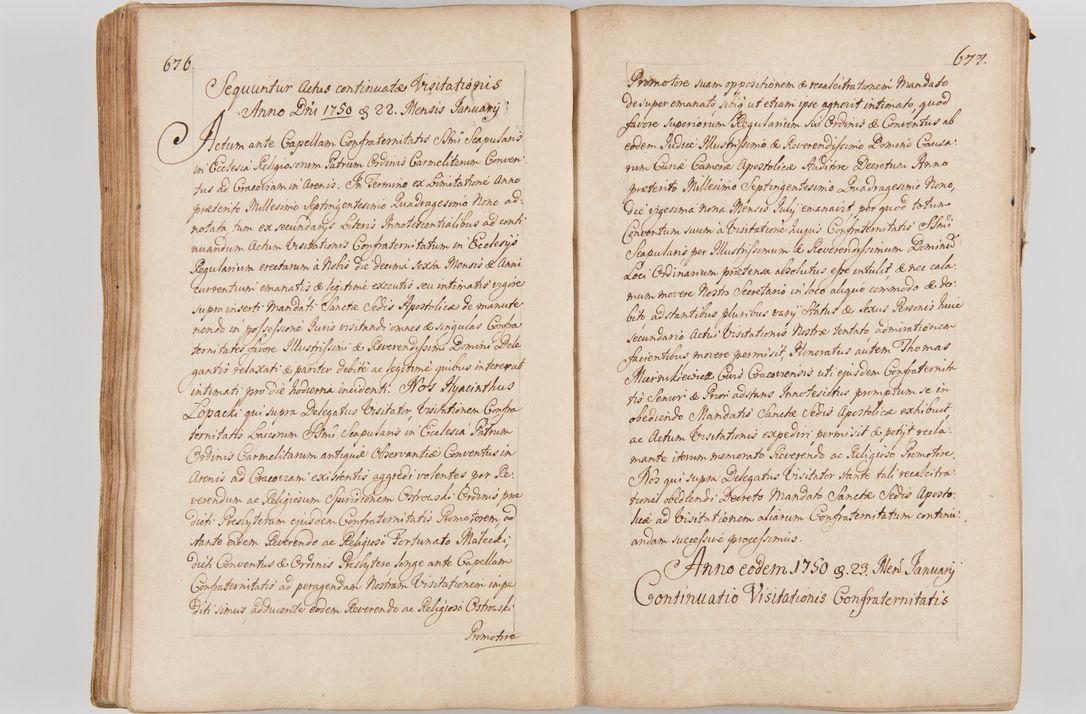 676.
Sequuntur Actus continuatæ Visitationis
Anno Dni 1750 & 22. Mensis Januarij
Actum ante Capellam Confraternitatis SSmi Scapularis
in Ecclesia Religiosorum Patrum Ordinis Carmelitarum Conven
tus ad Cracoviam in Arenis. In Termino ex Limitatione Anno
præterito Millesimo Septingentesimo Quadragesimo Nono ad
notata tum ex secundarys Literis Innotescentialibus ad conti
nuandum Actum Visitationis Confraternitatum in Ecclesijs
Regularium erectarum à Nobis die decima sexta Mensis & Anni
currentium emanatis & legitime executis seu intimatis vigore
supra inserti Mandati Sanctæ Sedis Apostolicæ de manute
nendo in possessione Juris visitandi omnes & singulas Confra
ternitates favore Illustrissimi & Reverendissimi Domini Dele
gantis relaxati & pariter debite ac legitime quibus intererat
intimati pro die hodierna incidenti. Nos Hyacinthus
Łopacki qui supra Delegatus Visitator Visitationem Confra
ternitatis Laicorum SSmi Scapularis in Ecclesia Patrum
Ordinis Carmelitarum antiquæ Observantiæ Conventus in
Arenis ad Cracoviam existentis aggredi volentes per Re
verendum ac Religiosum Spiridionem Ostrowski Ordinis præ
dicti Presbyterum ejusdem Confraternitatis Promotorem ad
stante eidem Reverendo ac Religioso Fortunato Małecki,
dicti Conventus & Ordinis Presbytero longe ante Capellam
Confraternitatis ad peragendam Nostram Visitationem impe
diti simus adducente eodem Reverendo ac Religioso Ostrowski
Promotore
677.
Promotore suam oppositionem & recalcitrationem Mandato
desuper emanato sibiq ut etiam ipse agnovit intimato, quod
favore Superiorum Regularium sui Ordinis & Conventus ab
eodem Judice Illustrissimo & Reverendissimo Domino Causa
rum Curiæ Cameræ Apostolicæ Auditore Decretum Anno
præterito Millesimo Septingentesimo Quadragesimo Nono,
die vigesima nona Mensis Julij emanavit, per quod totum
Conventum suum à Visitatione hujus Confraternitatis SSmi
Scapularis per Illustrissimum & Reverendissimum Dominum
Loci Ordinarium prætensa absolutus esse intulit & nec cala
mum movere Nostro Secretario in loco aliquo commodo & de
bito adstantibus pluribus varij Status & Sexus Personis huic
secundario Actui Visitationis Nostræ tentato admirationem
facientibus movere permisit, Honoratus autem Thomas
Miernikiewicz Civis Cracoviensis uti ejusdem Confraternita
tis Senior & Prior adstans Innotescitus promptum se in
obediendo Mandatis Sanctæ Sedis Apostolicæ exhibuit
ac Actum Visitationis expediri permisit & petijt recla
mante iterum memorato Reverendo ac Religioso Promotore.
Nos qui supra Delegatus Visitator stante tali recalcitra
tione obediendi Decreto Mandato Sanctæ Sedis Aposto
licæ ad Visitationem aliarum Confraternitatum continu
andam successive processimus.
Anno eodem 1750 & 23. Men Januarij
Continuatio Visitationis Confraternitatis